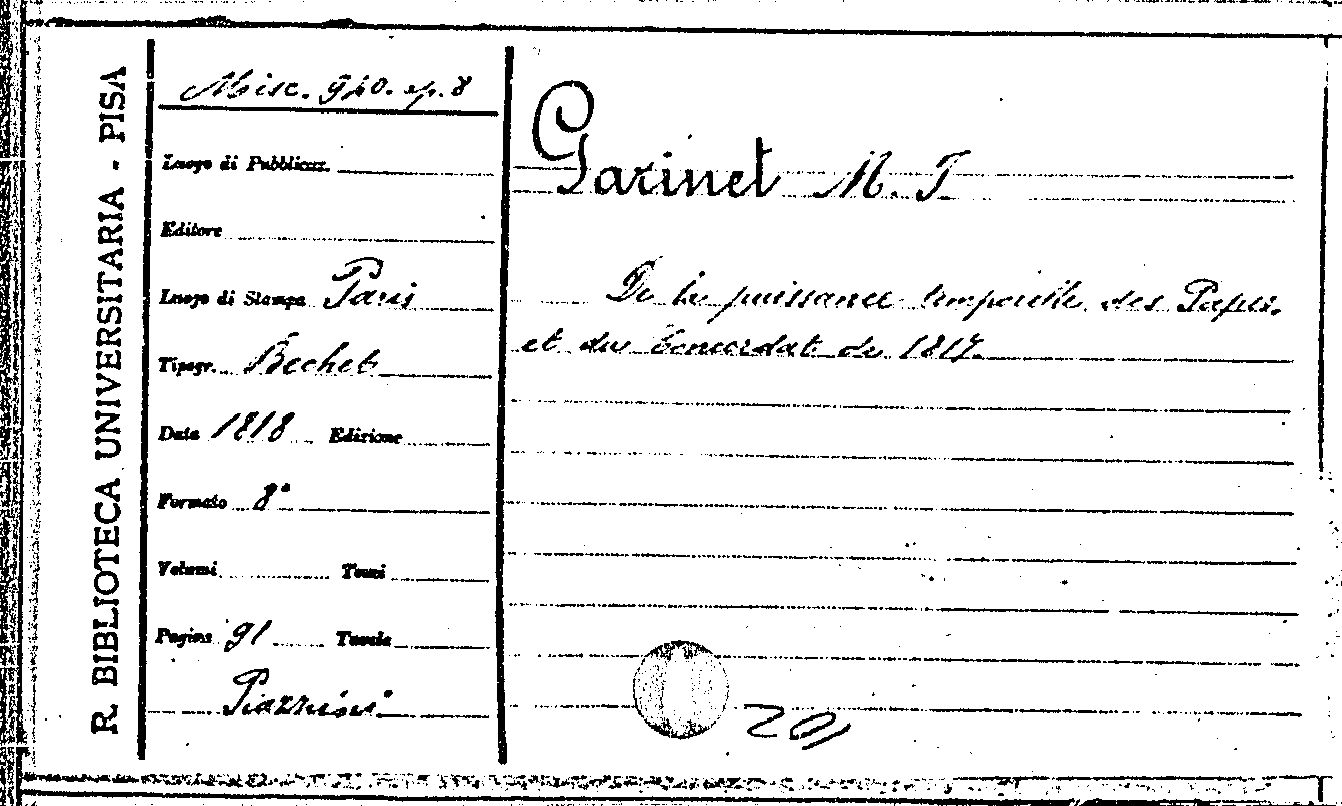 R. BIBLIOTECA UNIVERSITARIA - PISA
Misc. 940. op. 8
Luogo di Pubblicaz.
Editore
Luogo di Stampa Paris
Tipogr. Béchet
Data 1818 Edizione
Formato 8°
Volumi Tomi
Pagine 91 Tavole
Piazzini
Garinet M. J.
De la puissance temporelle des Papes,
et du Concordat de 1817.
201